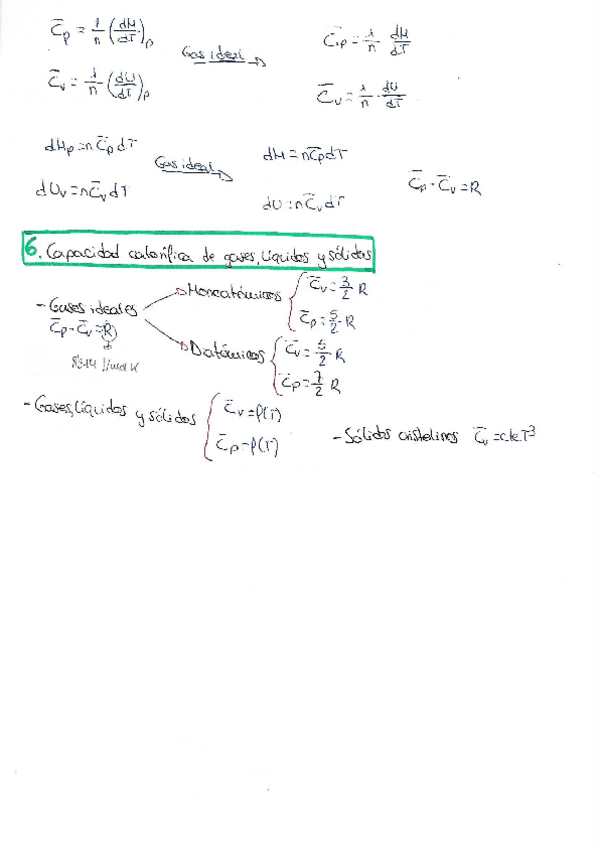 C̄p = 1/n (dH/dT)p Gas ideal → C̄p = 1/n · dH/dT
C̄v = 1/n (dU/dT)p C̄v = 1/n · dU/dT
dHp = n C̄p dT Gas ideal → dH = n C̄p dT
dUv = n C̄v dT dU = n C̄v dT C̄p - C̄v = R
6. Capacidad calorífica de gases, líquidos y sólidos
- Gases ideales → Monoatómicos { C̄v = 3/2 R
C̄p = 5/2 · R
C̄p - C̄v = R
8'314 J/mol K
→ Diatómicos { C̄v = 5/2 · R
C̄p = 7/2 R
- Gases, líquidos y sólidos { C̄v = f(T)
C̄p = f(T)
- Sólidos cristalinos C̄v = cte T³